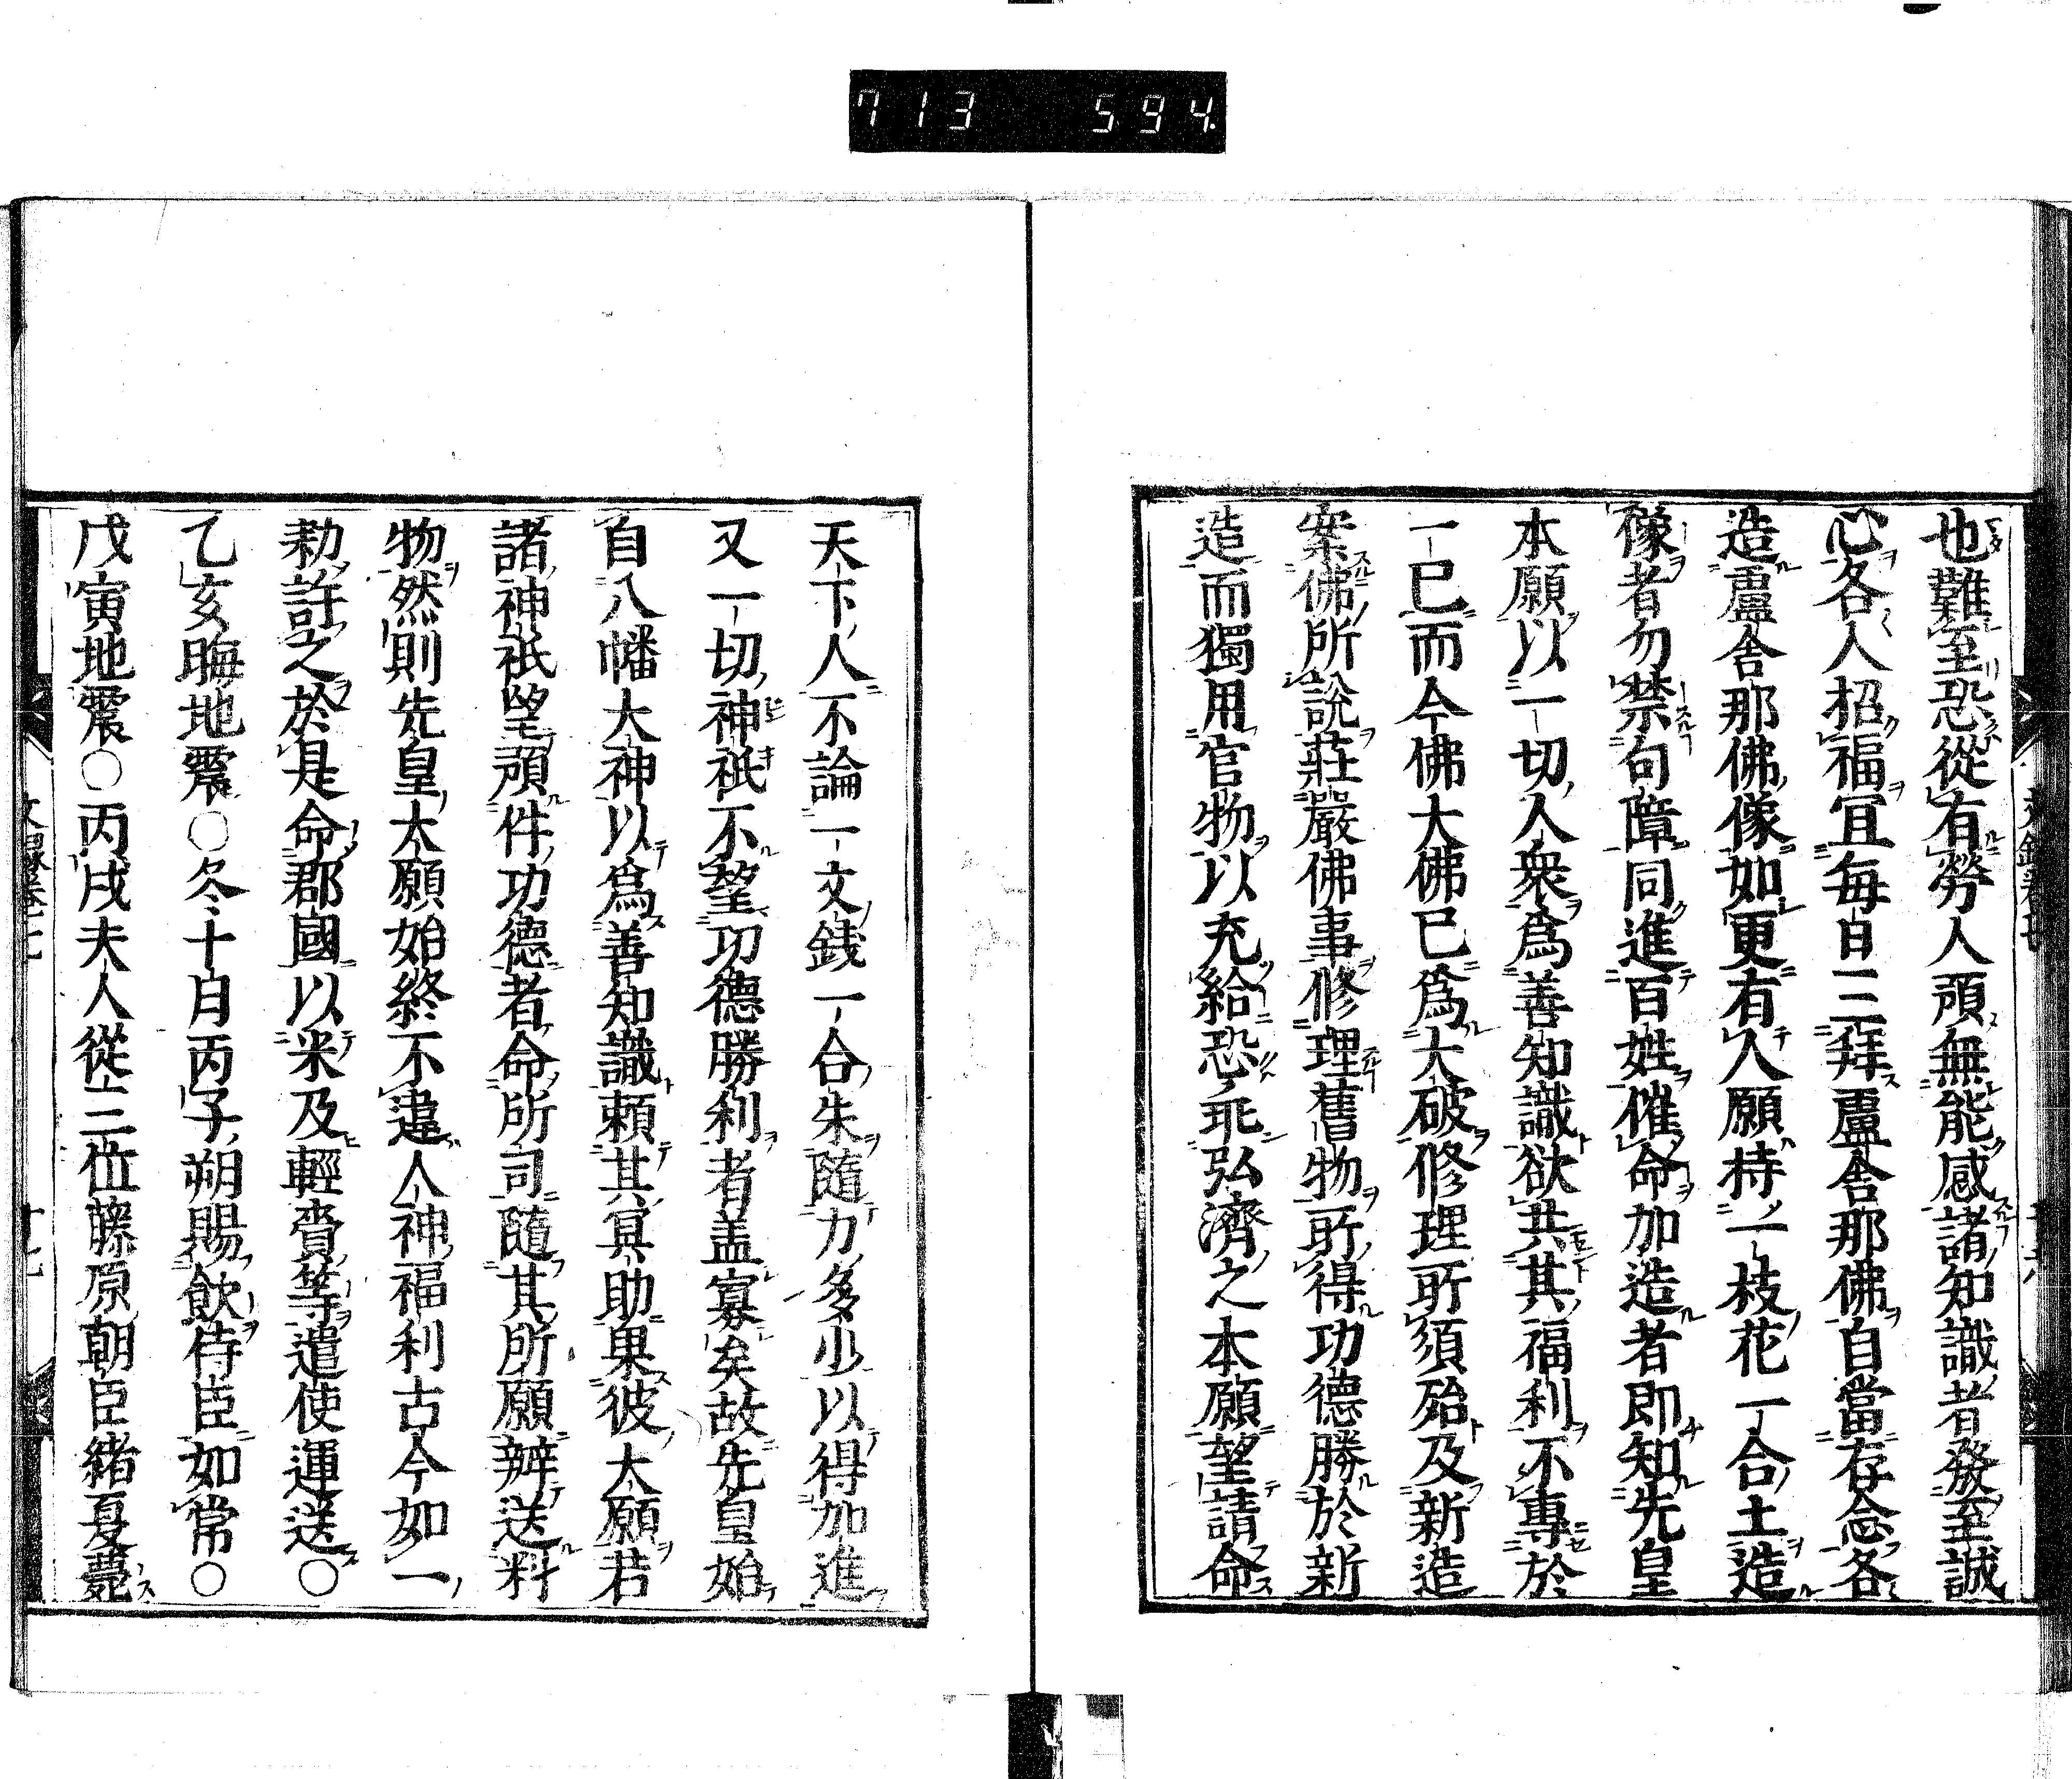 713 594
也難至恐從有勞人頑無能感諸知識者發至誠
心各人招福宜每日三拜盧舍那佛自當存念各
造盧舍那佛像如更有人願持一枝花一合土造
像者勿禁句障同進百姓催命加造者即知先皇
本願以一切人衆爲善知識欲共其福利不專於
一已而今佛大佛已爲大破修理所須殆及新造
案佛所說莊嚴佛事修理舊物所得功德勝於新
造而獨用官物以充給恐乖弘濟之本願望請命
天下人不論一文錢一合朱隨力多少以得加進
又一切神祇不望功德勝利者盖寡矣故先皇始
自八幡大神以爲善知識賴其冥助果彼大願若
諸神祇望頑件功德者命所司隨其所願辨送料
物然則先皇太願始終不違人神福利古今如一
勑許之於是命郡國以米及輕賫等遣使運送〇
乙亥晦地震〇冬十月丙子朔賜飲侍臣如常〇
戊寅地震〇丙戌夫人從三位藤原朝臣緖夏薨